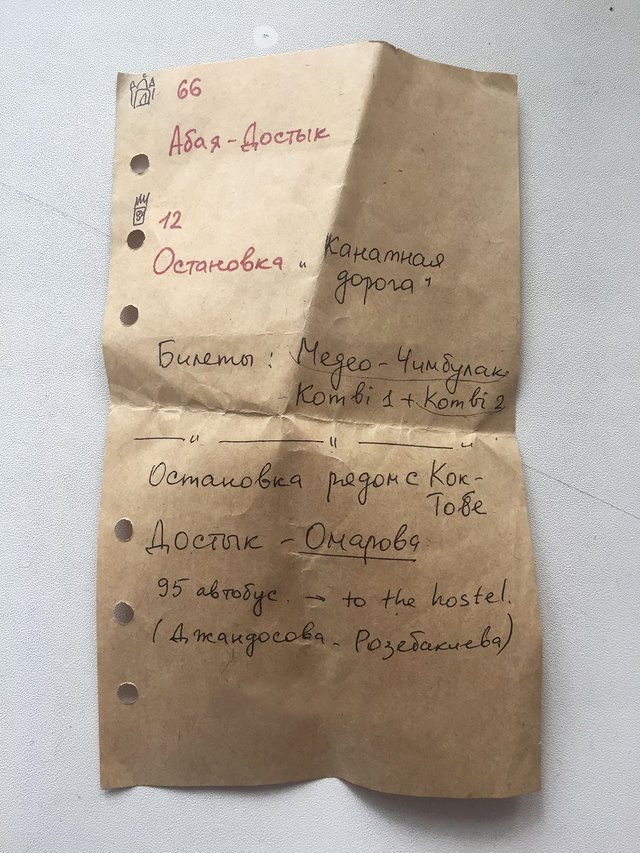 66
Абая-Достык
12
Остановка "Канатная
дорога"
Билеты: Медео-Чимбулак
Komвi 1 + Komвi 2
—— " —— " —— "
Остановка рядом с Кок-
Тобе
Достык - Омарова
95 автобус. → to the hostel.
(Джандосова - Розебакиева)